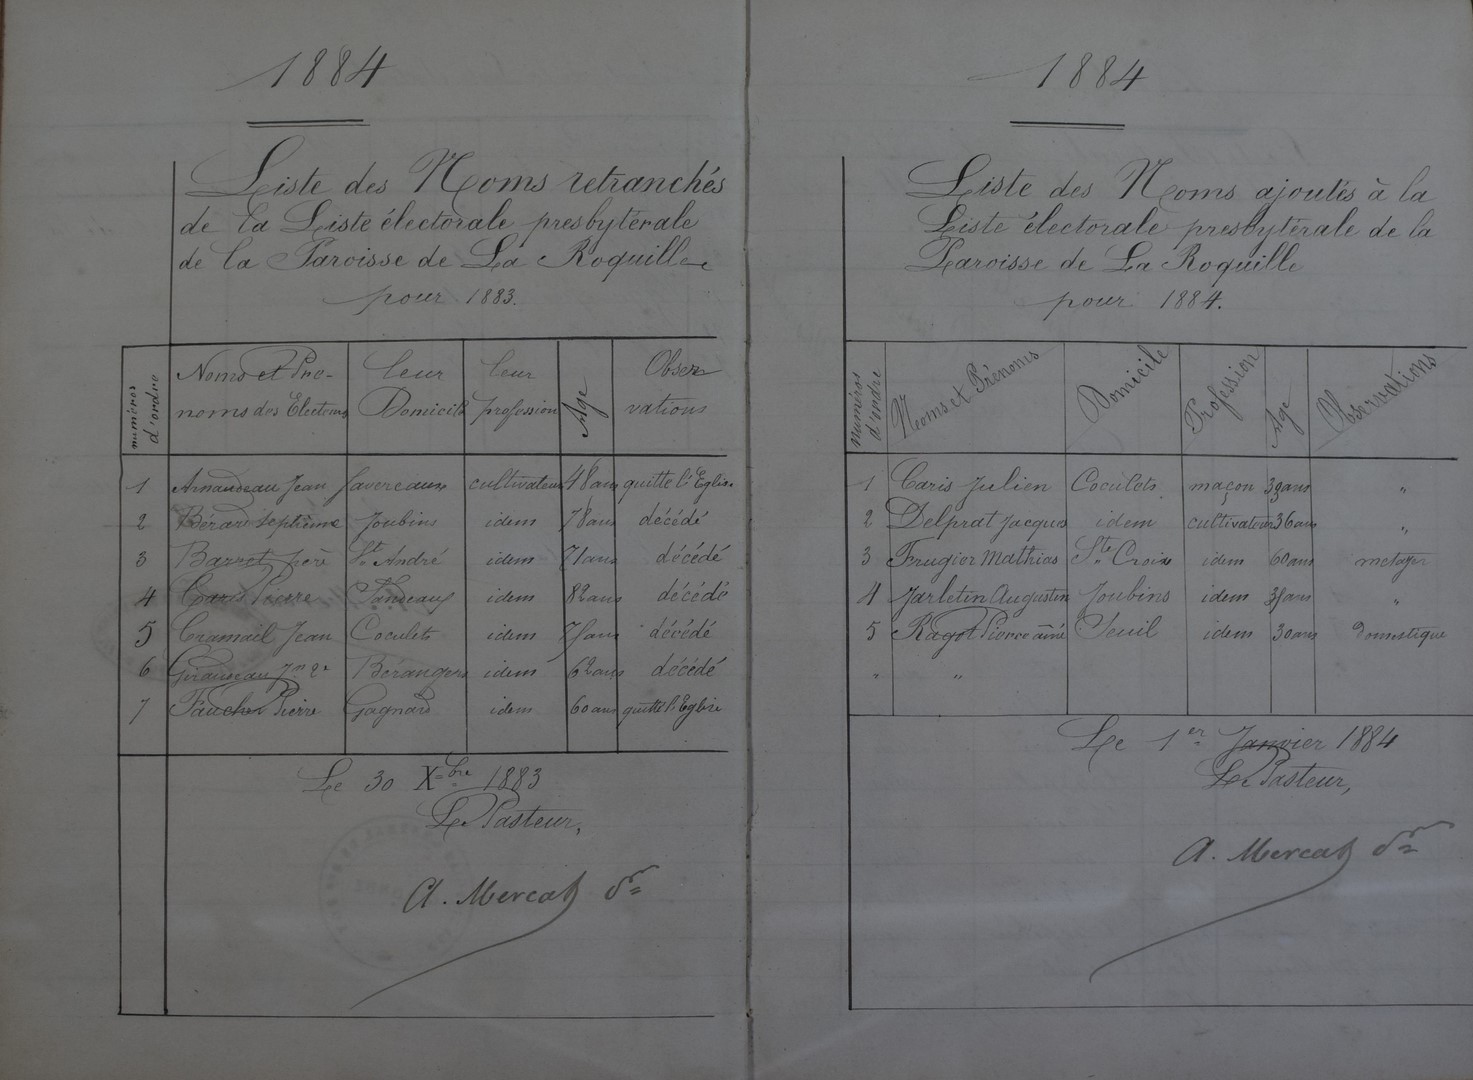 1884
Liste des Noms retranchés
de la Liste électorale presbytérale
de la Paroisse de La Roquille
pour 1883.
numéros d'ordre | Noms et Pré- noms des Electeurs | leur Domicile | leur profession | Age | Obser vations
1 Arnaudeau Jean Favereaux cultivateur 48 ans quitté l'Eglise
2 Bérard Septième Joubins idem 78 ans décédé
3 Barret père St André idem 71 ans décédé
4 Pierre idem 82 ans décédé
5 Cramail Jean Coculets idem ans décédé
6 Girauseau Jn 2e Bérangers idem 62 ans décédé
7 Faucher Pierre Gagnard idem 60 ans quitté l'Eglise
Le 30 Xbre 1883
Le Pasteur,
A. Mercat
1884
Liste des Noms ajoutés à la
Liste électorale presbytérale de la
Paroisse de La Roquille
pour 1884.
numéros d'ordre | Noms et Prénoms | Domicile | Profession | Age | Observations
1 Caris Julien Coculets maçon 33 ans "
2 Delprat Jacques idem cultivateur 36 ans "
3 Frugier Mathias Ste Croix idem 60 ans métayer
4 Jarletin Augustin Joubins idem ans "
5 Ragot Pierre ainé Seuil idem 30 ans Domestique
" "
Le 1er Janvier 1884
Le Pasteur,
A. Mercat